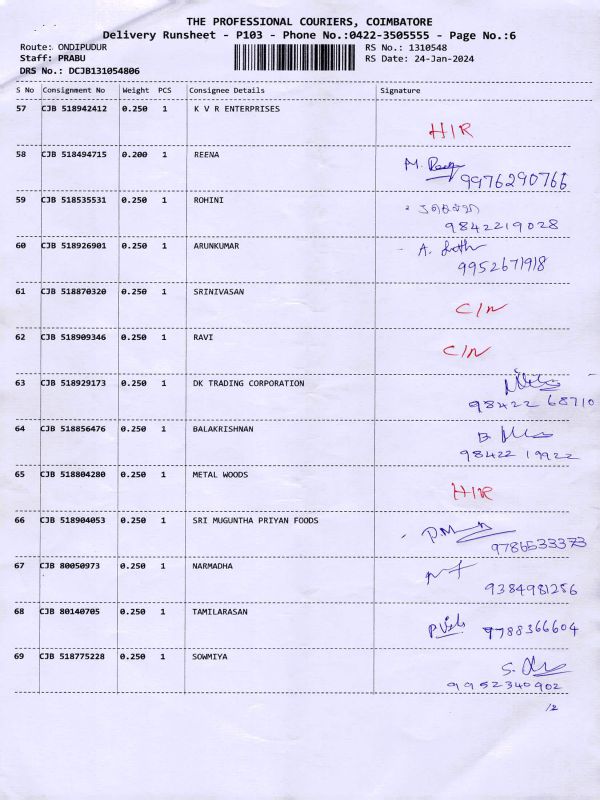 THE PROFESSIONAL COURIERS, COIMBATORE
Delivery Runsheet - P103 - Phone No.:0422-3505555 - Page No.:6
Route: ONDIPUDUR RS No.: 1310548
Staff: PRABU RS Date: 24-Jan-2024
DRS No.: DCJB131054806
S No Consignment No Weight PCS Consignee Details Signature
57 CJB 518942412 0.250 1 K V R ENTERPRISES
H/R
58 CJB 518494715 0.200 1 REENA
M.
9976290766
59 CJB 518535531 0.250 1 ROHINI
9842219028
60 CJB 518926901 0.250 1 ARUNKUMAR
A.
9952671918
61 CJB 518870320 0.250 1 SRINIVASAN
C/N
62 CJB 518909346 0.250 1 RAVI
C/N
63 CJB 518929173 0.250 1 DK TRADING CORPORATION
98422 68710
64 CJB 518856476 0.250 1 BALAKRISHNAN
B.
98422 19922
65 CJB 518804280 0.250 1 METAL WOODS
H/R
66 CJB 518904053 0.250 1 SRI MUGUNTHA PRIYAN FOODS
P.M
9786533373
67 CJB 80050973 0.250 1 NARMADHA
9384981256
68 CJB 80140705 0.250 1 TAMILARASAN
9788366604
69 CJB 518775228 0.250 1 SOWMIYA
S.
9952340902
12